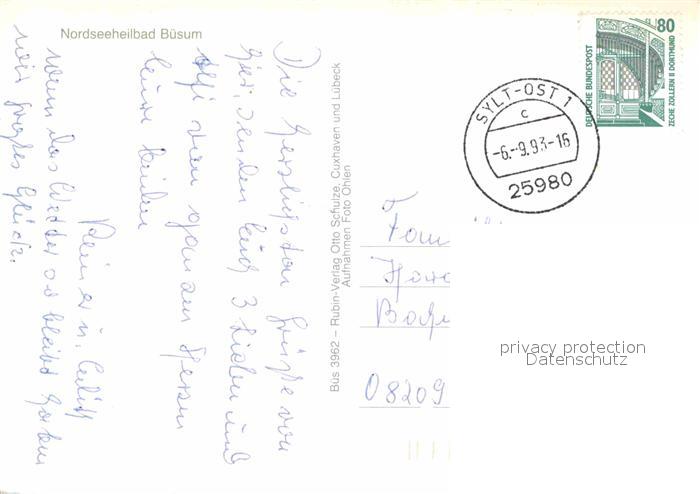 Nordseeheilbad Büsum
Die herzlichsten Grüße von
hier, senden Euch 3 Lieben und
von ganzem Herzen
Eure beiden
Reiner u.
wenn das Wetter so bleibt haben
wir großes Glück.
Büs 3962 – Rubin-Verlag Otto Schulze, Cuxhaven und Lübeck
Aufnahmen Foto Ohlen
80
DEUTSCHE BUNDESPOST
ZECHE ZOLLERN II DORTMUND
SYLT-OST 1
c
-6.-9.93-16
25980
Fam
08209
privacy protection
Datenschutz